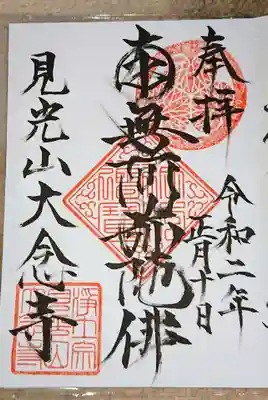 奉拝
令和二年
正月十日
南無阿弥陀佛
見光山大念寺
浄土宗